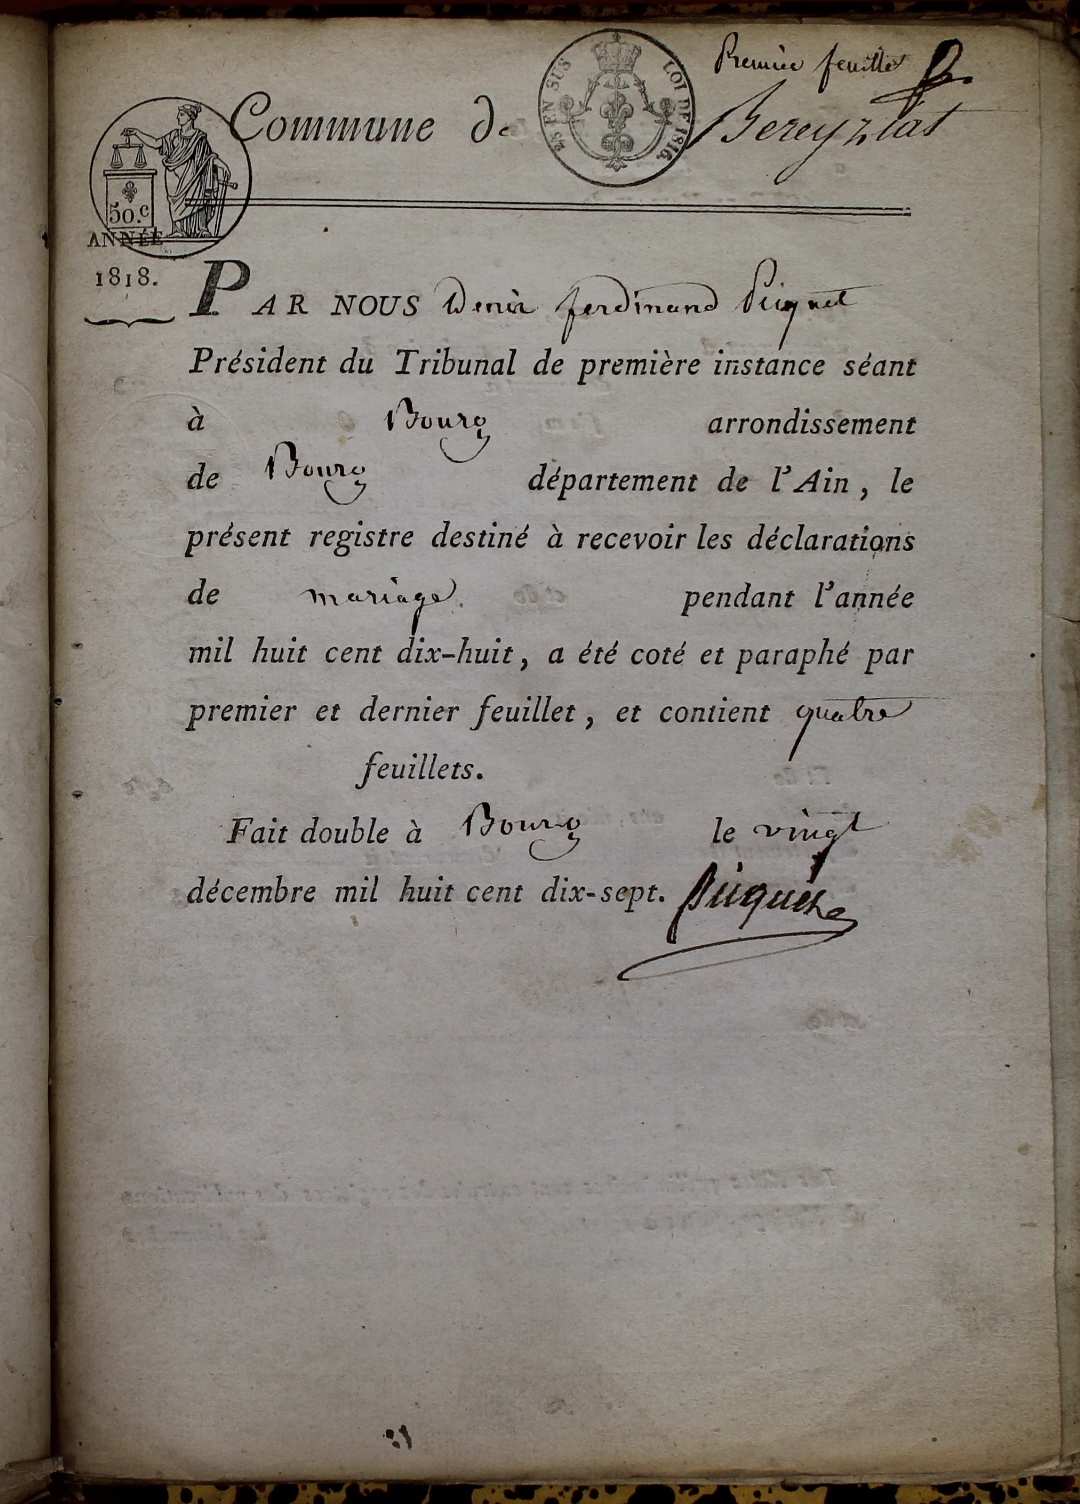 Premier feuillet
Commune de Bereyziat
25 EN SUS LOI DE 1816.
50.c
ANNÉE
1818.
PAR NOUS Denis ferdinand Piquet
Président du Tribunal de première instance séant
à Bourg arrondissement
de Bourg département de l'Ain, le
présent registre destiné à recevoir les déclarations
de mariage. pendant l'année
mil huit cent dix-huit, a été coté et paraphé par
premier et dernier feuillet, et contient quatre
feuillets.
Fait double à Bourg le vingt
décembre mil huit cent dix-sept. Piquet